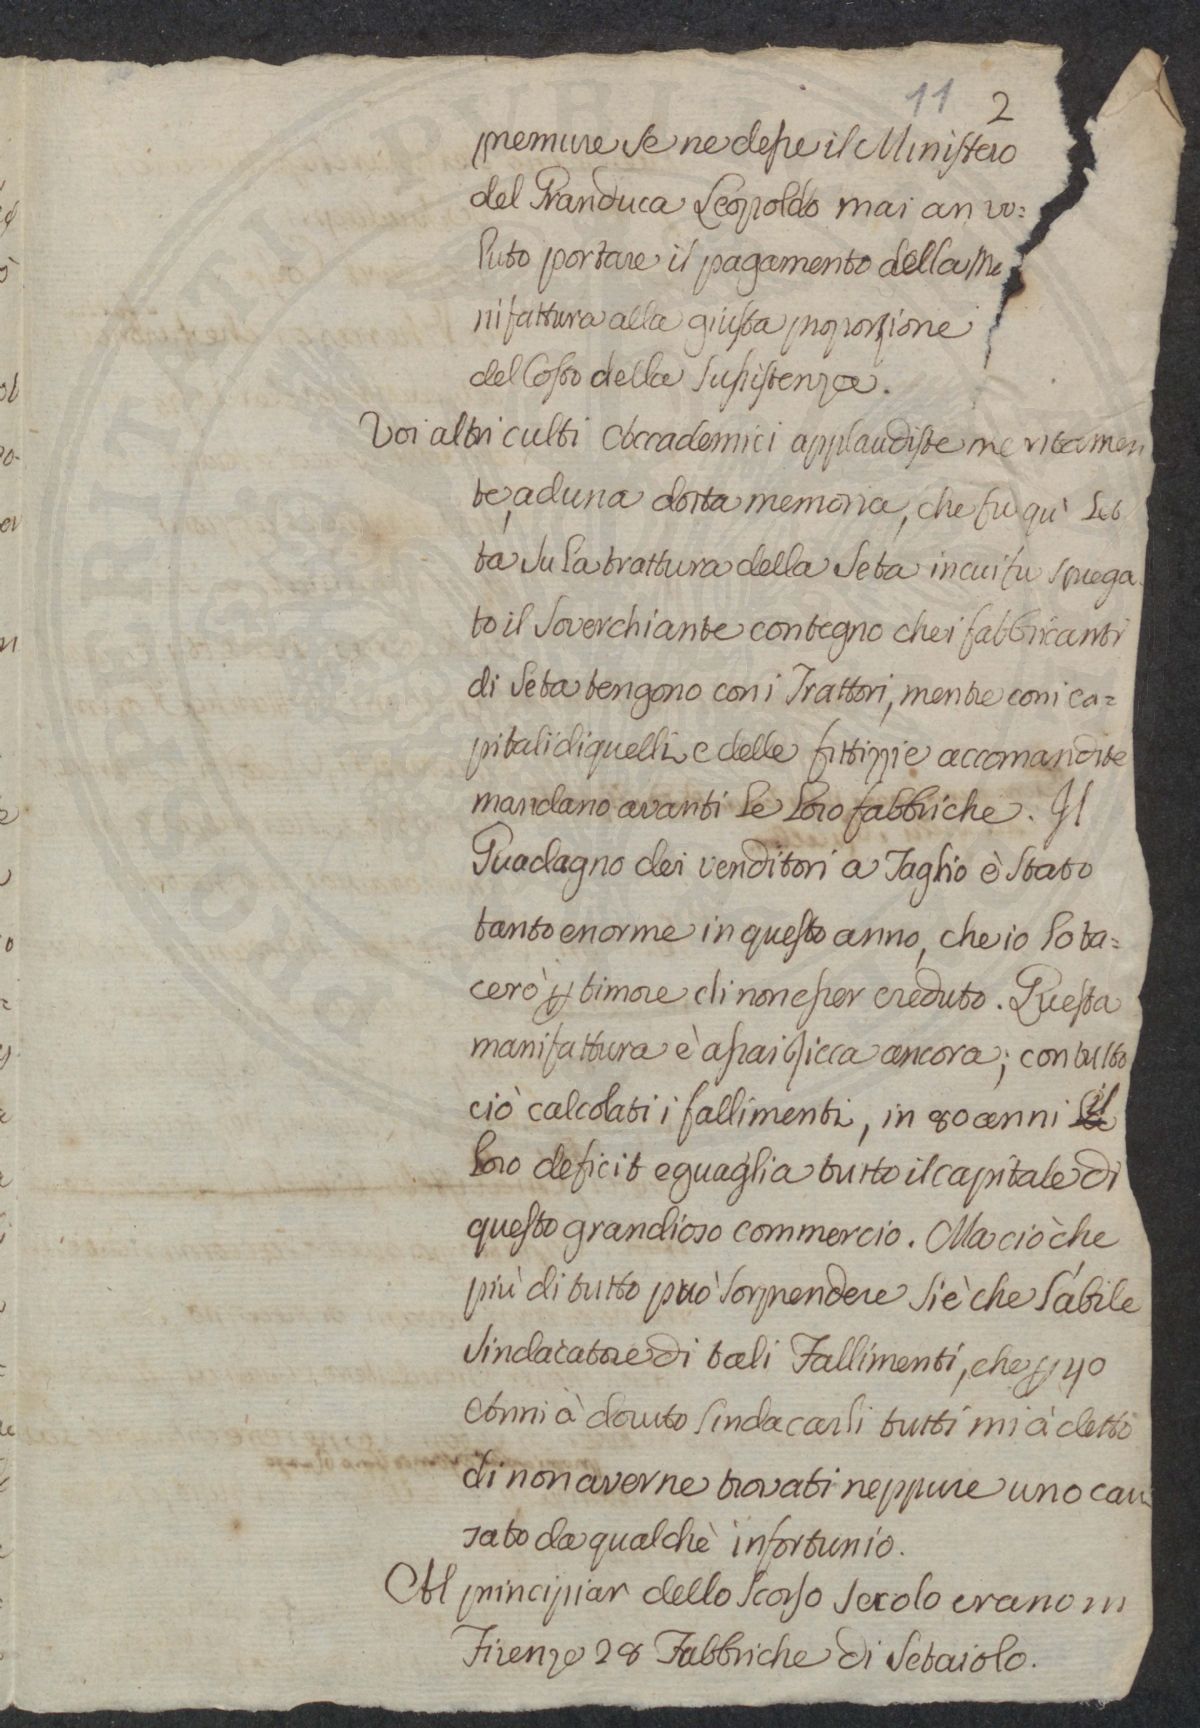 11 2
premure se ne desse il Ministero
del Granduca Leopoldo mai an vo=
luto portare il pagamento della Ma
nifattura alla giusta proporzione
del Costo della Sussistenza.
Voi altri culti Accademici applaudiste meritamen
te, ad una dotta memoria, che fu quì let
ta su la trattura della Seta in cui fu spiega
to il soverchiante contegno che i fabbricanti
di Seta tengono con i Trattori, mentre con i ca=
pitali di quelli e delle fittizzie accomandite
mandano avanti le loro fabbriche. Il
Guadagno dei venditori a Taglio è stato
tanto enorme in questo anno, che io lo ta=
cerò p timore di non esser creduto. Questa
manifattura è assai ricca ancora; con tutto
ciò calcolati i fallimenti, in 80 anni il
loro deficit eguaglia tutto il capitale di
questo grandioso commercio. Ma ciò che
più di tutto può sorprendere si è che l'abile
Sindacatore di tali Fallimenti, che p 40
Anni à dovuto sindacarli tutti mi à detto
di non averne trovati neppure uno cau
sato da qualchè infortunio.
Al principiar dello scorso secolo erano in
Firenze 28 Fabbriche di Setaiolo.